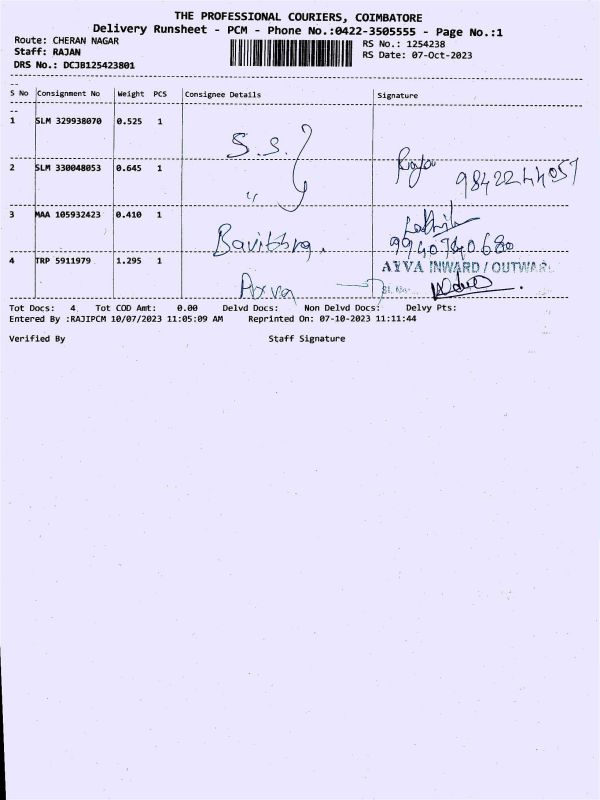 THE PROFESSIONAL COURIERS, COIMBATORE
Delivery Runsheet - PCM - Phone No.:0422-3505555 - Page No.:1
Route: CHERAN NAGAR
RS No.: 1254238
Staff: RAJAN
RS Date: 07-Oct-2023
DRS No.: DCJB125423801
S No Consignment No Weight PCS Consignee Details Signature
1 SLM 329938070 0.525 1 S.S.
2 SLM 330048053 0.645 1 〃 9842244057
3 MAA 105932423 0.410 1 Bavithra.
9940740680
4 TRP 5911979 1.295 1 AYVA INWARD / OUTWARD
Ayva Sl. No.
Tot Docs: 4 Tot COD Amt: 0.00 Delvd Docs: Non Delvd Docs: Delvy Pts:
Entered By :RAJIPCM 10/07/2023 11:05:09 AM Reprinted On: 07-10-2023 11:11:44
Verified By Staff Signature